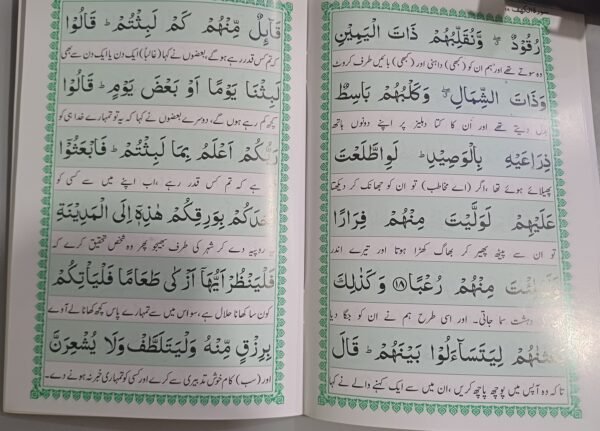 سورة الكهف
رُقُوْدٌ ۖ وَّنُقَلِّبُهُمْ ذَاتَ الْيَمِيْنِ
وہ سوتے تھے اور ہم ان کو (کبھی) داہنی اور (کبھی) بائیں طرف کروٹ
وَذَاتَ الشِّمَالِ ۖ وَكَلْبُهُمْ بَاسِطٌ
بدل دیتے تھے اور اُن کا کتا دہلیز پر اپنے دونوں ہاتھ
ذِرَاعَيْهِ بِالْوَصِيْدِ ؕ لَوِاطَّلَعْتَ
پھیلائے ہوئے تھا ،اگر (اے مخاطب) تو ان کو جھانک کر دیکھتا
عَلَيْهِمْ لَوَلَّيْتَ مِنْهُمْ فِرَارًا
تو ان سے پیٹھ پھیر کر بھاگ کھڑا ہوتا اور تیرے اندر
مِنْهُمْ رُعْبًا ﴿۱۸﴾ وَكَذٰلِكَ
دہشت سما جاتی۔ اور اسی طرح ہم نے ان کو جگا دیا
لِيَتَسَآءَلُوْا بَيْنَهُمْ ؕ قَالَ
تا کہ وہ آپس میں پوچھ پاچھ کریں ،ان میں سے ایک کہنے والے نے کہا
قَآئِلٌ مِّنْهُمْ كَمْ لَبِثْتُمْ ؕ قَالُوْا
کہ تم کس قدر رہے ہوگے، بعضوں نے کہا (غالبًا) ایک دن یا ایک دن سے بھی
لَبِثْنَا يَوْمًا اَوْ بَعْضَ يَوْمٍ ؕ قَالُوْا
کچھ کم رہے ہوں گے، دوسرے بعضوں نے کہا کہ یہ تو تمہارے خدا ہی کو
رَبُّكُمْ اَعْلَمُ بِمَا لَبِثْتُمْ ؕ فَابْعَثُوْٓا
ہے کہ تم کس قدر رہے ،اب اپنے میں سے کسی کو
اَحَدَكُمْ بِوَرِقِكُمْ هٰذِهٖٓ اِلَى الْمَدِيْنَةِ
یہ روپیہ دے کر شہر کی طرف بھیجو پھر وہ شخص تحقیق کرے کہ
فَلْيَنْظُرْ اَيُّهَآ اَزْكٰى طَعَامًا فَلْيَاْتِكُمْ
کون سا کھانا حلال ہے ،سو اس میں سے تمہارے پاس کچھ کھانا لے آوے
بِرِزْقٍ مِّنْهُ وَلْيَتَلَطَّفْ وَلَا يُشْعِرَنَّ
اور (سب) کام خوش تدبیری سے کرے اور کسی کو تمہاری خبر نہ ہونے دے۔